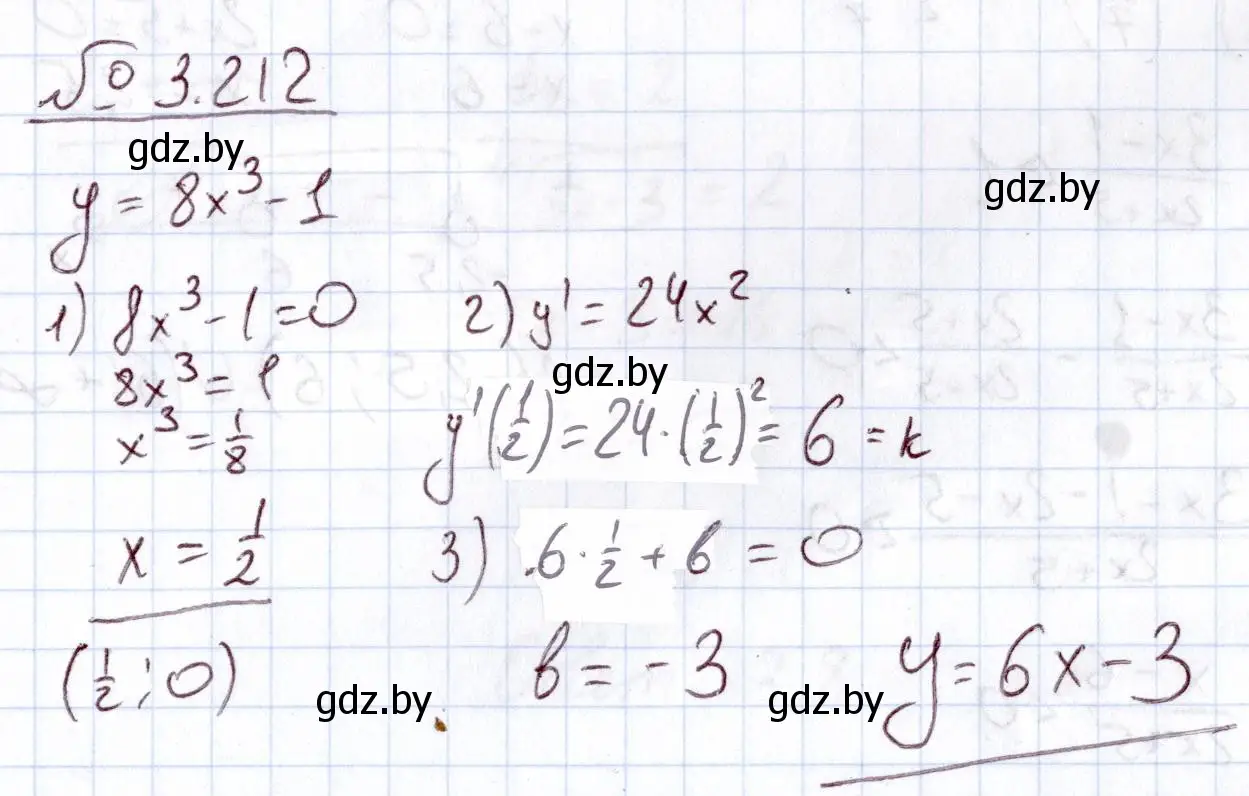 № 3.212
gdz.by
y = 8x³ - 1
gdz.by
1) 8x³ - 1 = 0
8x³ = 1
x³ = 1/8
x = 1/2
(1/2; 0)
2) y' = 24x²
gdz.by
y'(1/2) = 24·(1/2)² = 6 = k
3) 6·1/2 + b = 0
b = -3
y = 6x - 3
gdz.by
gdz.by